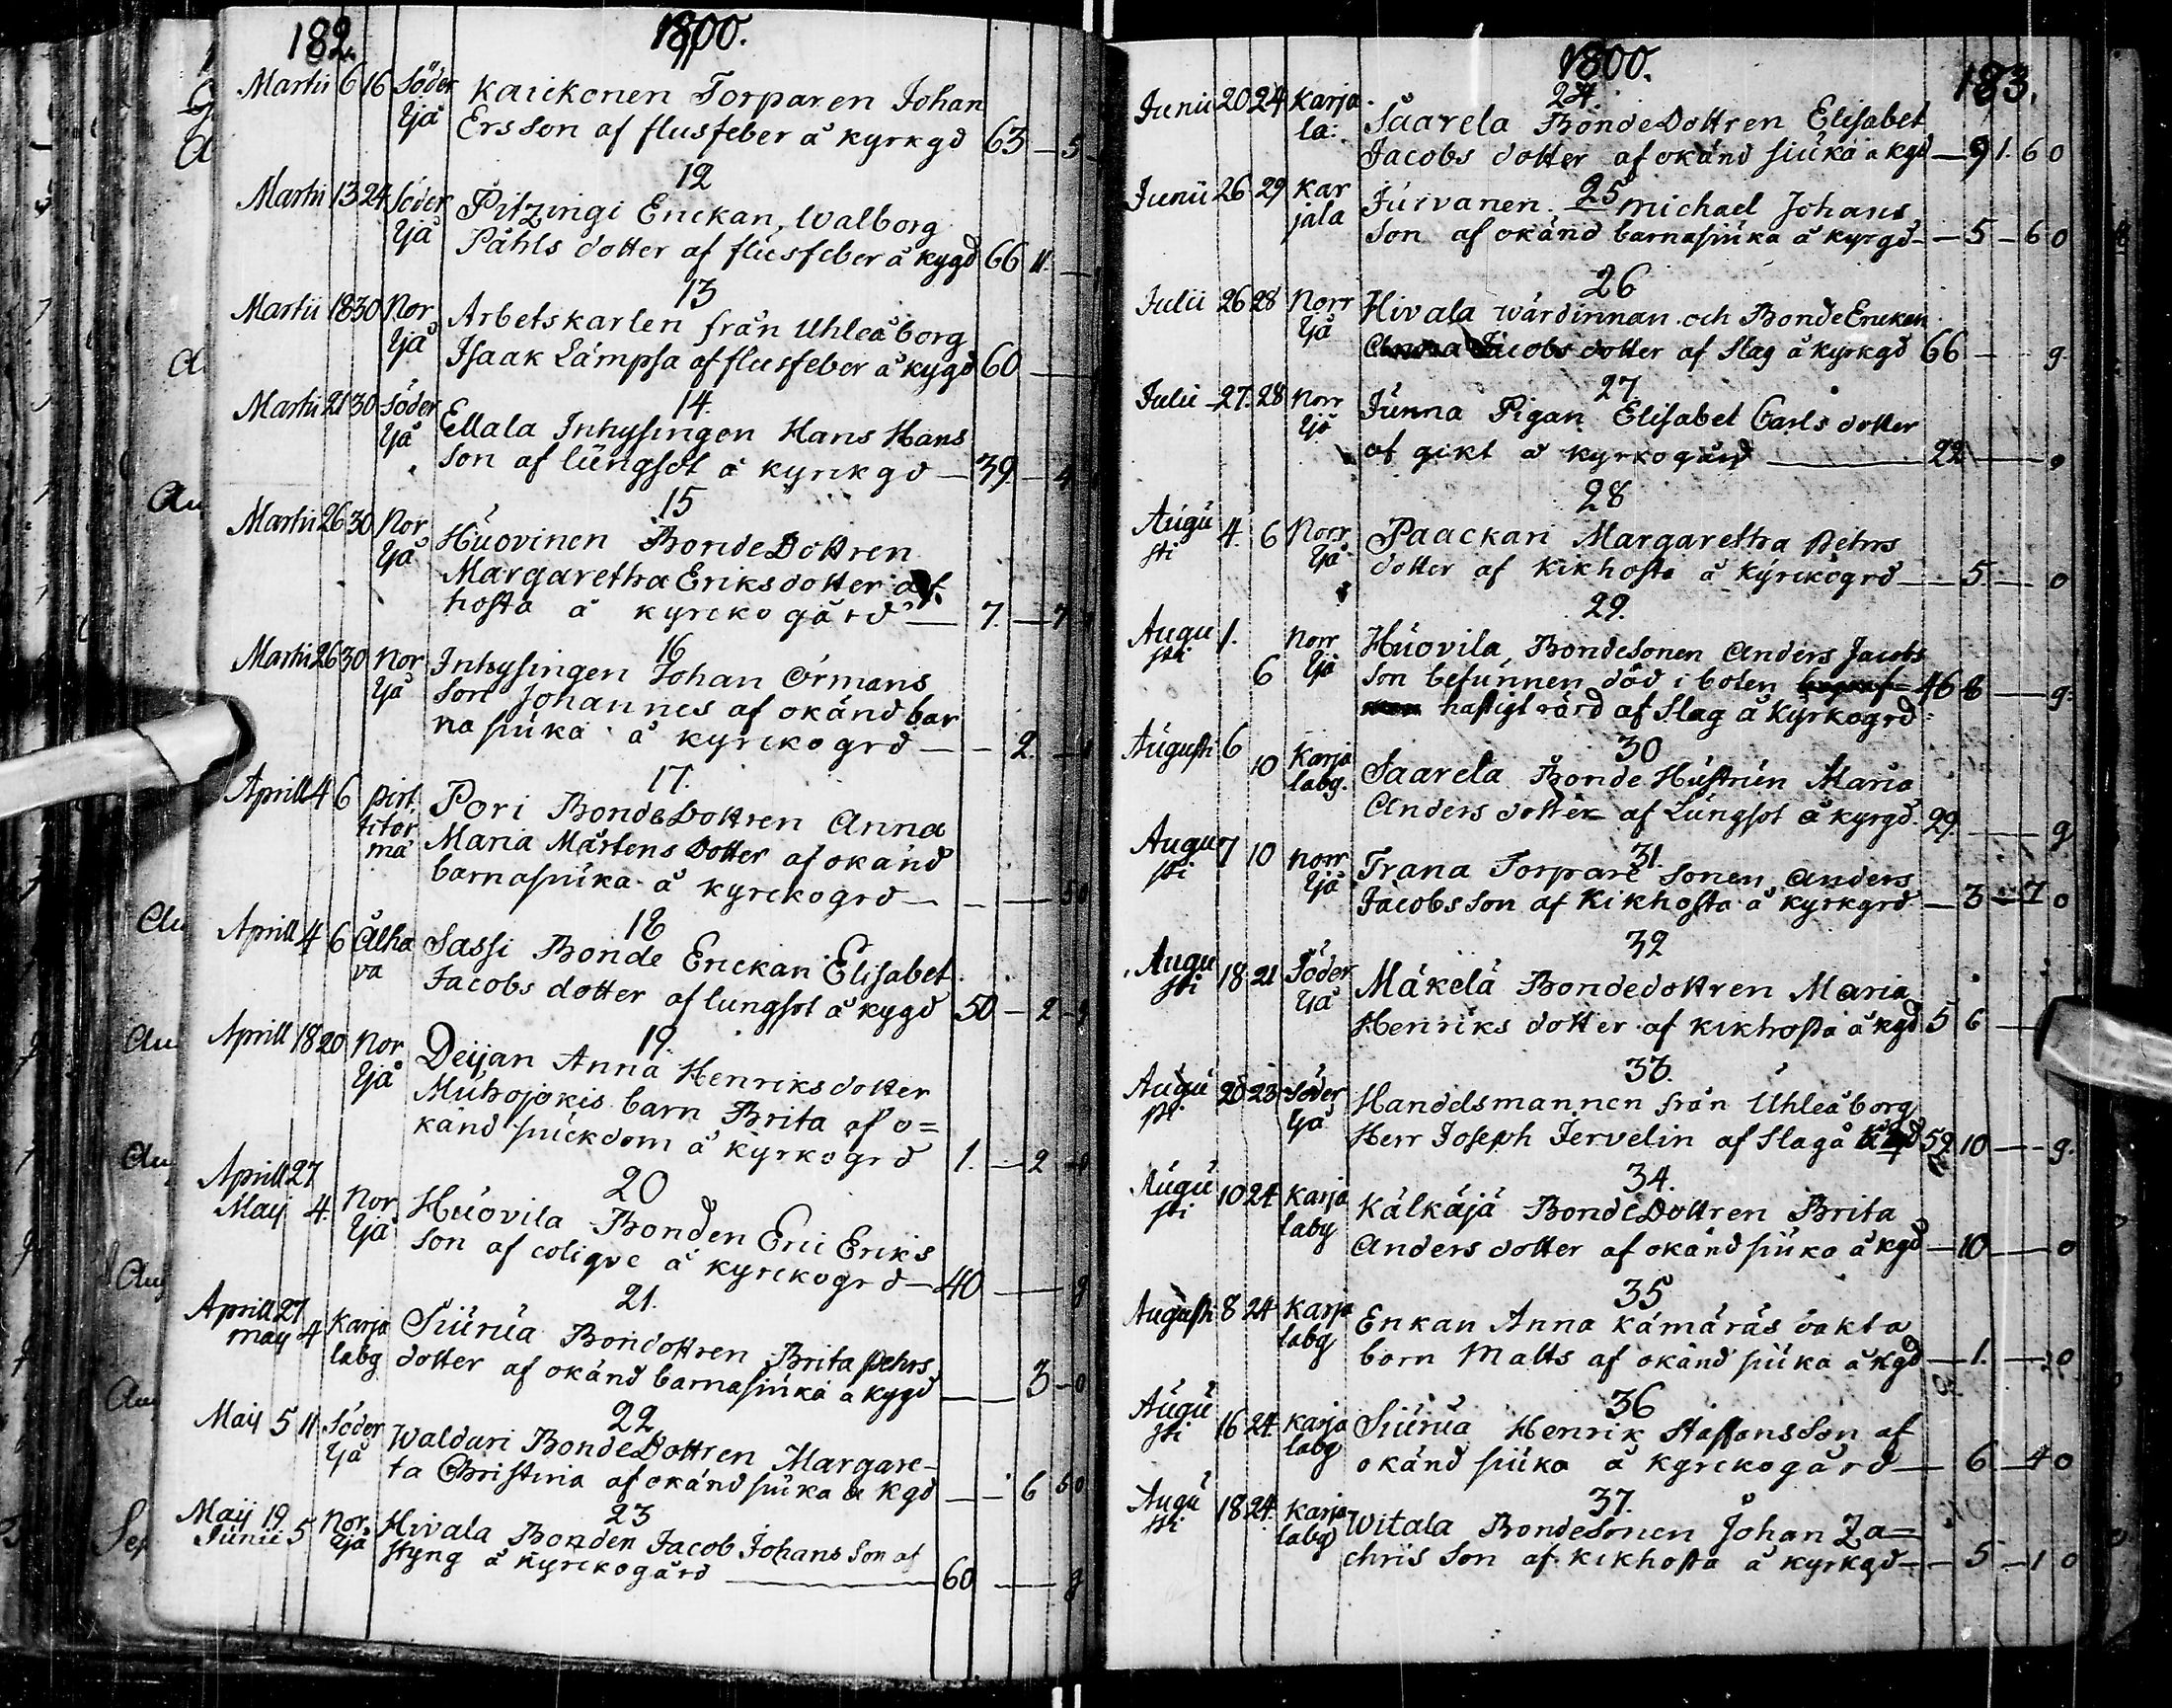 182.
1800.
11
Martii 6 16 Söder Kaickonen Torparen Johan
Ijå Ersson af flusfeber å kyrkgd 63 — 5
12
Martii 13 24 Söder Pitzingi Enckan, Walborg
Ijå Påhls dotter af flusfeber å kygd 66 11. —
13
Martii 18 30 Nor Arbetskarlen från Uhleåborg
Ijå Isaak Lämpsa af flusfeber å kygd 60 —
14.
Martii 21 30 Söder Ellala Inhysingen Hans Hans
Ijå son af lungsot å kyrkgd — 39. — 4
15
Martii 26 30 Nor Huovinen BondeDottren
Ijå Margaretha Eriksdotter af
hosta å kyrckogård — 7. — 7
16
Martii 26 30 Nor Inhysingen Johan Örmans
Ijå son Johannes af okänd bar
nasiuka å kyrckogrd — — 2. —
17.
Aprill 4 6 Pirt Pori BondeDottren Anna
titör Maria Mårtens Dotter af okänd
mä barnasiuka å kyrckogrd — — — 50
18
Aprill 4 6 Alha Sassi Bonde Enckan Elisabet
va Jacobs dotter af lungsot å kygd 50 — 2 —
19.
Aprill 18 20 Nor Deijan Anna Henriksdotter
Ijå Muhojokis barn Brita af o=
känd siuckdom å kyrkogrd 1. — 2
20
Aprill 27
Maij 4. Nor Huovila Bonden Eric Eriks
Ijå son af colique å kyrckogrd — 40 — g
21.
Aprill 27 Karja Siurua Bondottren Brita Pehrs
may 4 labg dotter af okänd barnasiuka å kygd — 3 — 0
22
Maij 5 11 Söder Waldari BondeDottren Margare-
Ijå ta Christina af okänd siuka å kgd — — 6 60
23
Maij 19 Nor Hivala Bonden Jacob Johans Son af
Junii 5 Ijå styng å kyrckogård — 60 — g
1800.
183.
24.
Junii 20 24 Karja Saarela BondeDottren Elisabet
la: Jacobs dotter af okänd siuka å kgd — 9 1. 60
25
Junii 26 29 Kar Jurvanen Michael Johans
jala Son af okänd barnasiuka å kyrgd — — 5 — 60
26
Julii 26 28 Norr Hivala wärdinnan och BondeEnckan
Ijå Anna Jacobs dotter af Slag å kyrkgd 66 — — g.
27.
Julii 27. 28 Norr Junna Pigan Elisabet Carls dotter
Ijå af gikt å kyrkogård — 22 — 0
28
Augu
sti 4. 6 Norr Paackari Margaretha Pehrs
Ijå dotter af Kikhosta å kyrckogrd — 5. — 0
29.
Augu
sti 1. Norr Huovila, Bondesonen Anders Jacobs
6 Ijå son befunnen död i boten 46 8 — g.
hastigt rörd af Slag å Kyrkogrd
30
Augusti 6 10 Karja Saarela Bonde Hustrun Maria
labg. Anders dotter af Lungsot å kyrgd. 29. — g
31.
Augu
sti 7 10 Norr Trana Torpare Sonen Anders
Ijå Jacobs son af Kikhosta å kyrkgrd — 3 — 7 0
32
Augu
sti 18 21 Söder Mäkelä Bondedottren Maria
Ijå Henriks dotter af kikhosta å kgd. 5 6 —
33.
Augu
sti 20 23 Söder Handelsmannen från Uhleåborg
Ijå Herr Joseph Jervelin af Slag å kgd 59. 10 — g.
34.
Augu
sti 10 24 Karja Kälkäjä BondeDottren Brita
labg Anders dotter af okänd siuka å kgd — 10 — 0
35
Augusti 8 24 Karja Enkan Anna Kämäräs oäkta
labg barn Malts af okänd siuka å kgd — 1. — 0
36
Augu
sti 16 24. Karja Siurua Henrik Staffansson af
labg okänd siuka å kyrckogård — 6. — 40
37.
Augu
sti 18 24. Karja Witala Bondesonen Johan Za=
labg chris Son af kikhosta å kyrkgd — — 5 — 10